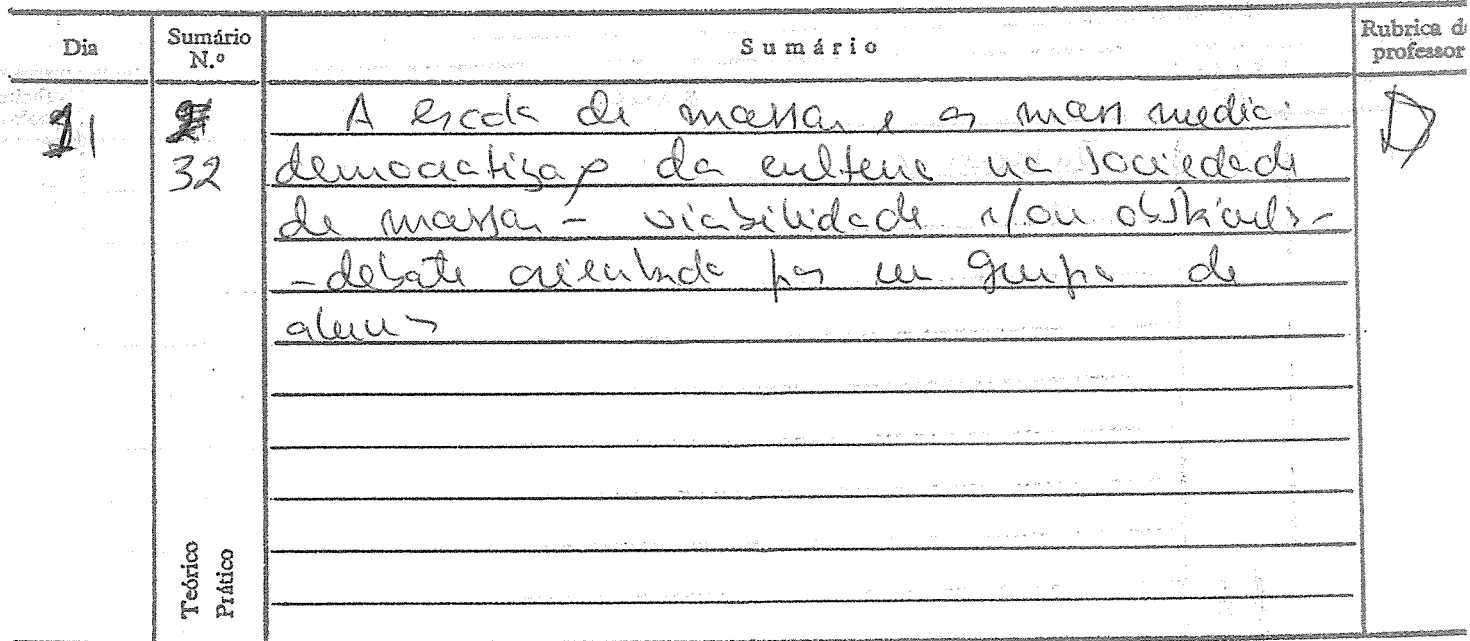 Dia Sumário N.º Sumário Rubrica do professor
A escola de massas e os mass media:
32 democratização da cultura na sociedade
de massas - viabilidade e/ou obstáculos -
- debate orientado por um grupo de
alunos
Teórico
Prático